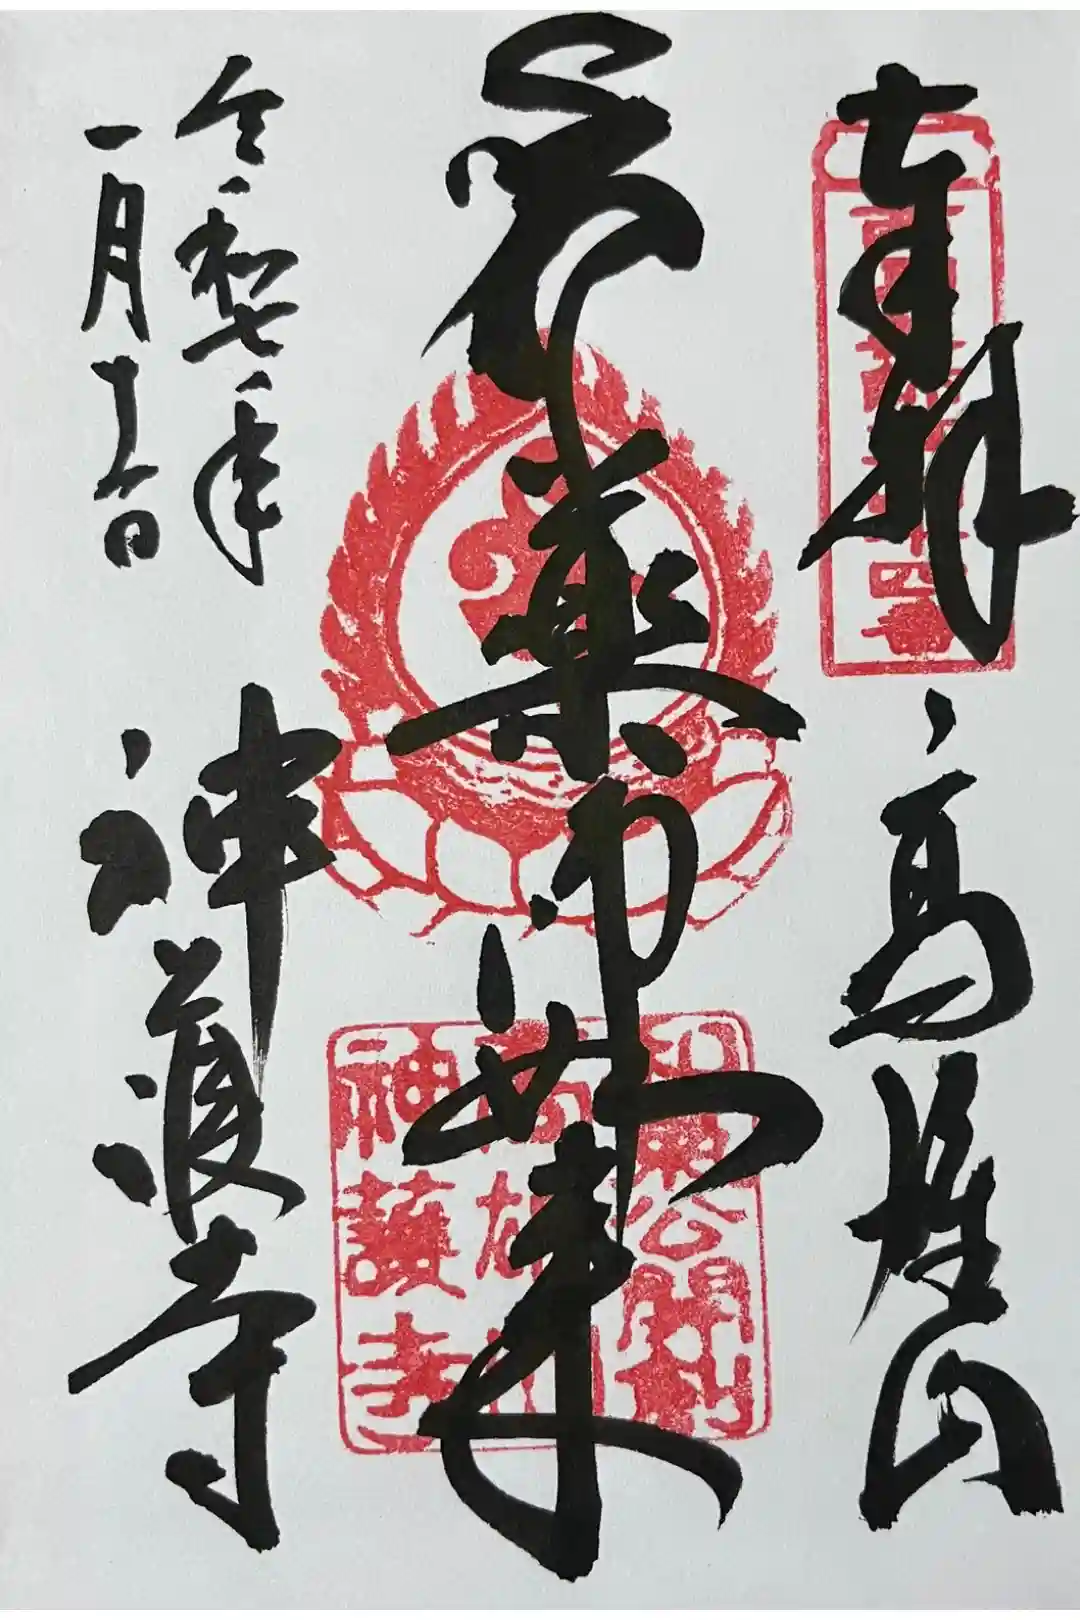 奉拝
高雄山
薬師如来
令和七年
一月十六日
神護寺
和気公開創
高雄山
神護寺